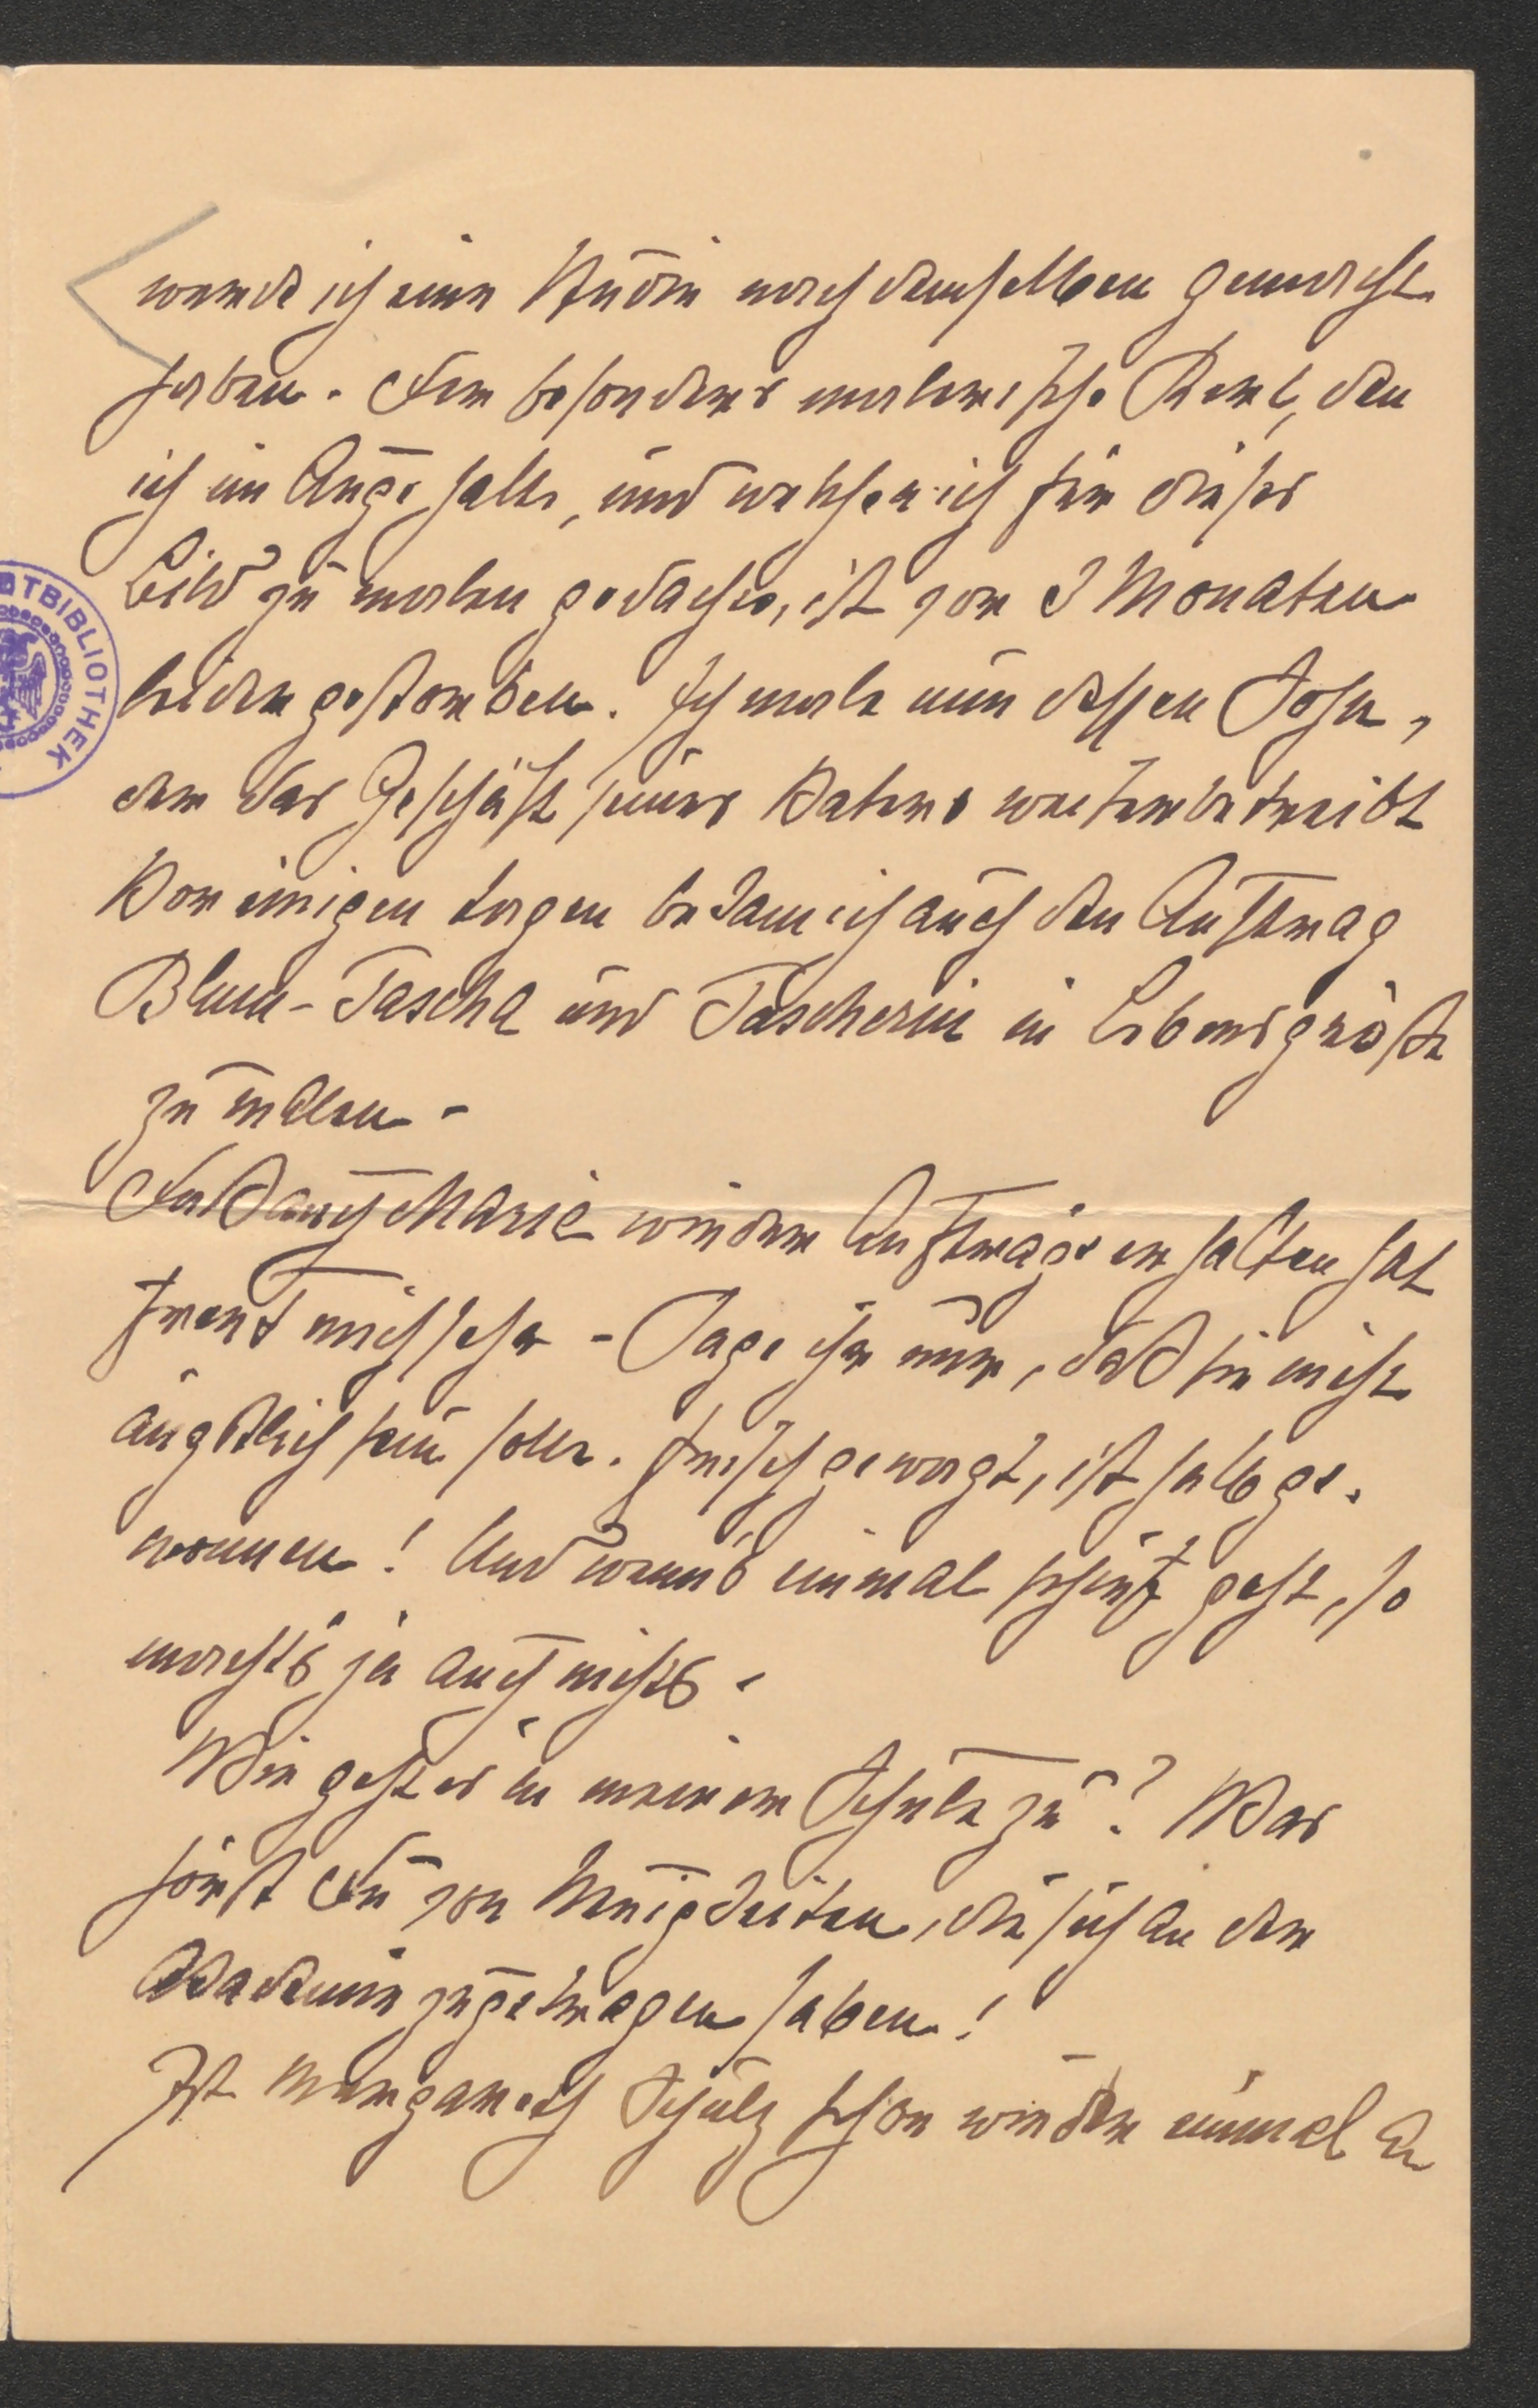 werde ich eine Studie nach demselben gemacht
haben. Der besonders malerische Kerl, den
ich im Auge hatte, und welchen ich für dieses
Bild zu malen gedachte, ist vor 3 Monaten
leider gestorben. Ich male nun dessen Sohn,
der das Geschäft seines Vaters weiterbetreibt
Vor einigen Tagen bekam ich auch den Auftrag
Blum-Pascha und Pascherin in Lebensgröße
zu malen -
Daß auch Marie wieder Aufträge erhalten hat
freut mich sehr - Sage ihr nur, daß sie nicht
ängstlich sein solle. Frisch gewagt, ist halb ge-
wonnen! Und wenn's einmal schief geht, so
macht's ja auch nichts.
Wie geht es in meiner Schule zu? Was
hörst Du von Neuigkeiten, die sich an der
Akademie zugetragen haben!
Ist Margareth Schulz schon wieder einmal in
TBIBLIOTHEK